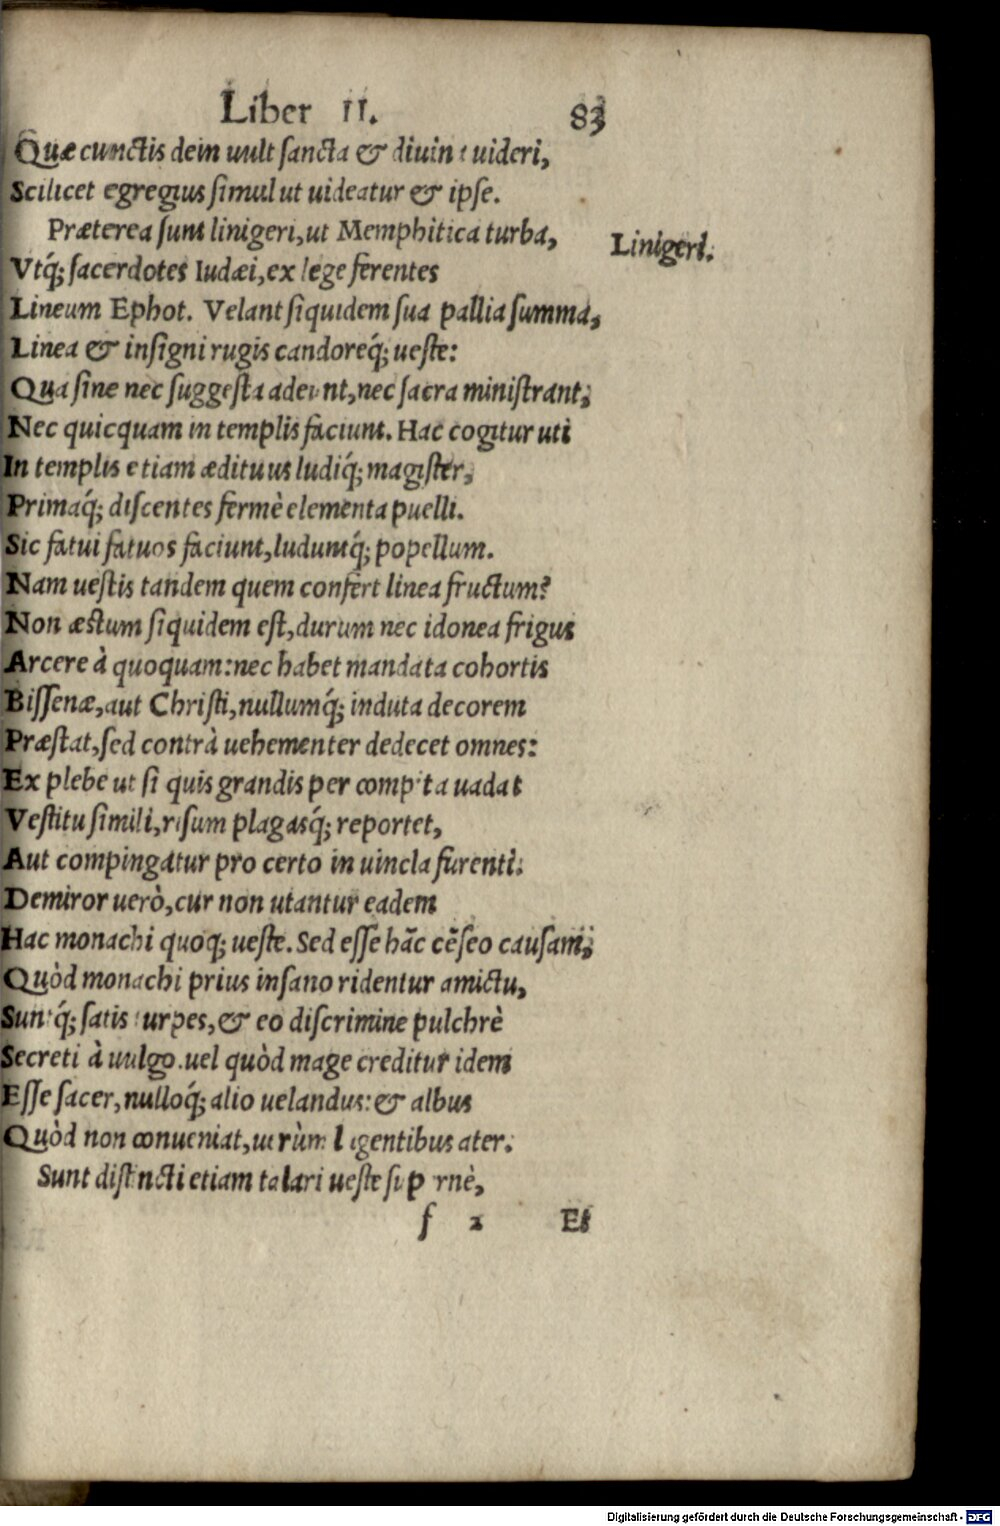 Liber II. 83
Quæ cunctis dein uult sancta & diuin uideri,
Scilicet egregius simul ut uideatur & ipse.
Præterea sunt linigeri, ut Memphitica turba,
Linigeri.
Vtq́; sacerdotes Iudæi, ex lege ferentes
Lineum Ephot. Velant siquidem sua pallia summa,
Linea & insigni rugis candoreq́; ueste:
Qua sine nec suggesta adeunt, nec sacra ministrant;
Nec quicquam in templis faciunt. Hac cogitur uti
In templis etiam ædituus ludiq́; magister,
Primaq́; discentes fermè elementa puelli.
Sic fatui fatuos faciunt, ludumq́; popellum.
Nam uestis tandem quem confert linea fructum?
Non æstum siquidem est, durum nec idonea frigus
Arcere à quoquam: nec habet mandata cohortis
Bissenæ, aut Christi, nullumq́; induta decorem
Præstat, sed contrà uehementer dedecet omnes:
Ex plebe ut si quis grandis per compita uadat
Vestitu simili, risum plagasq́; reportet,
Aut compingatur pro certo in uincla furenti.
Demiror uerò, cur non utantur eadem
Hac monachi quoq; ueste. Sed esse hāc cēseo causam;
Quòd monachi prius insano ridentur amictu,
Suntq́; satis turpes, & eo discrimine pulchrè
Secreti à uulgo. uel quòd mage creditur idem
Esse sacer, nulloq́; alio uelandus: & albus
Quòd non conueniat, uerùm lugentibus ater.
Sunt distincti etiam talari ueste supernè,
f 2 Et
Digitalisierung gefördert durch die Deutsche Forschungsgemeinschaft - DFG